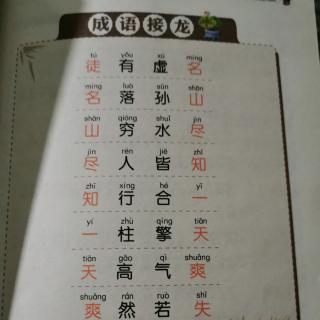 成语接龙
tú yǒu xū míng
徒有虚名
míng luò sūn shān
名落孙山
shān qióng shuǐ jìn
山穷水尽
jìn rén jiē zhī
尽人皆知
zhī xíng hé yī
知行合一
yí zhù qíng tiān
一柱擎天
tiān gāo qì shuǎng
天高气爽
shuǎng rán ruò shī
爽然若失